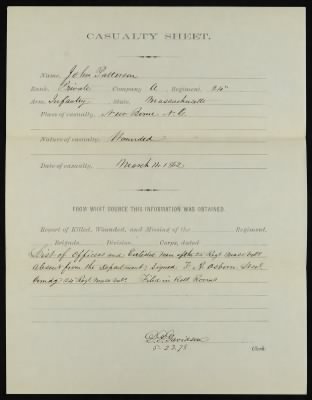 CASUALTY SHEET.
Name, John Patterson
Rank, Private Company A Regiment, 24"
Arm, Infantry State, Massachusetts
Place of casualty, New Berne, N.C.
Nature of casualty, Wounded
Date of casualty, March 14 1862.
FROM WHAT SOURCE THIS INFORMATION WAS OBTAINED.
Report of Killed, Wounded, and Missing of the Regiment,
Brigade, Division, Corps, dated
List of Officers and Enlisted men of the 24 Regt Mass Vols
absent from the department; signed F. A. Osborn
Comdg 24 Regt Mass Vols Filed in Roll Rooms
Davidson
5-23.78 Clerk.